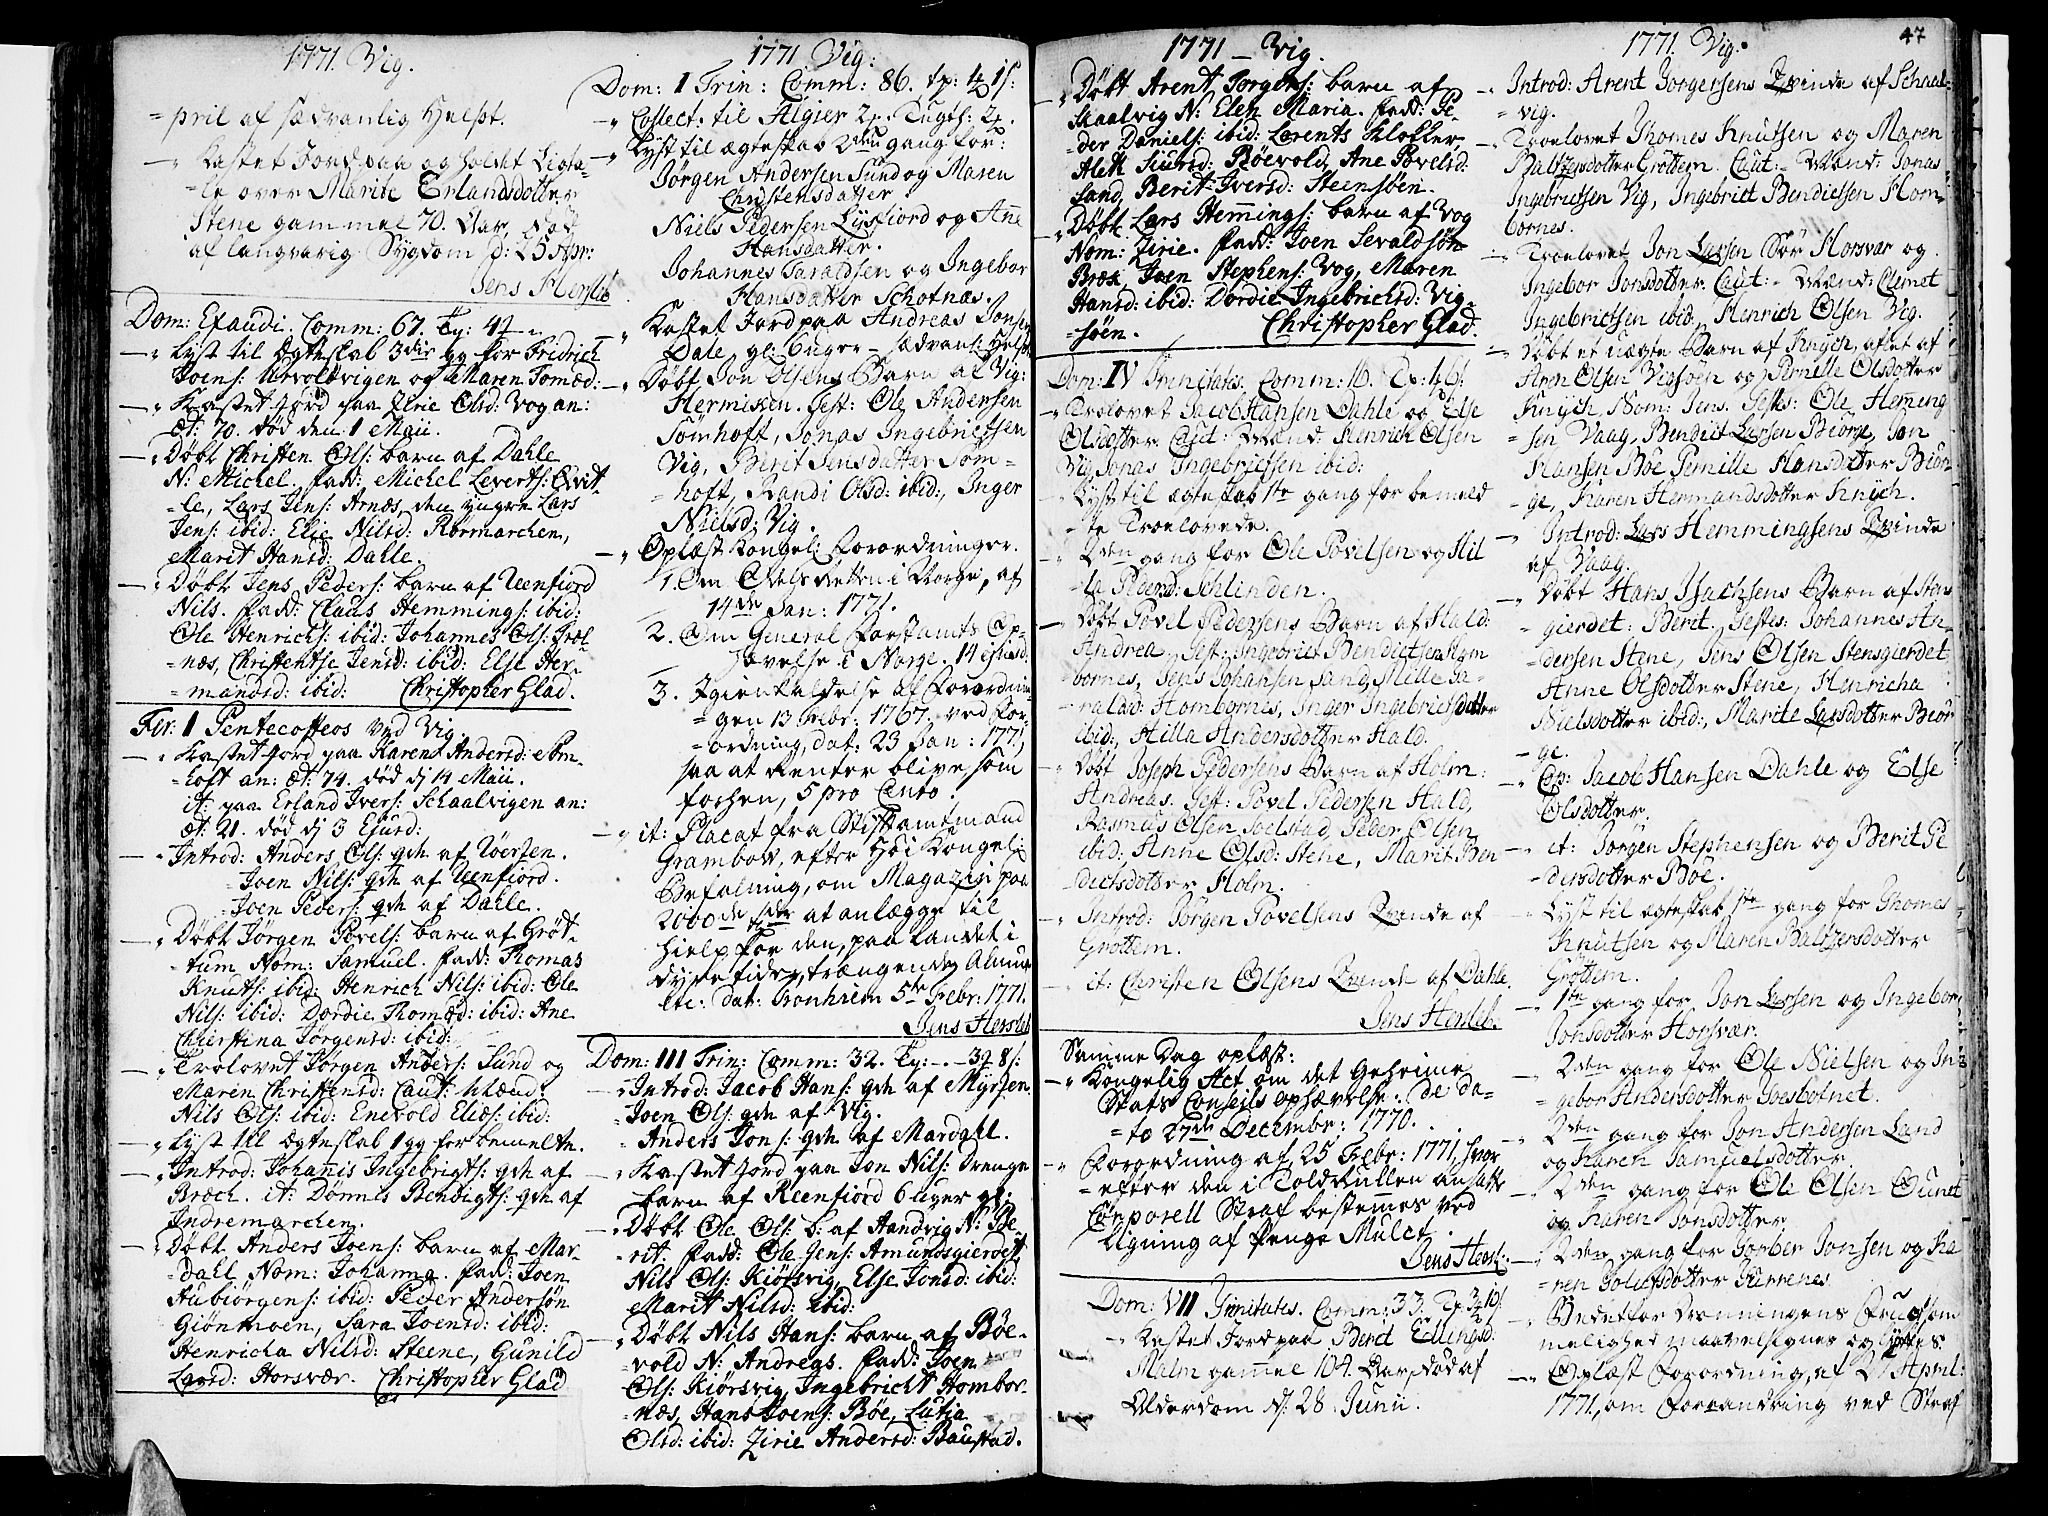 1771. Vig.
=pril af sædvanlig Helsot.
Kastet Jord paa og holdt Ligta-
=le over Marite Erlandsdotter
Stene gammel 70. Aar, død
af langvarig Sygdom d: 25 Apr:
Jens Hersleb
Dom: Exaudi. Comm: 67. Tp: 4
Lyst til Ægteskab 3die gg for Fridrich
Joens: Urvoldvigen og Maren Tomæd:
Kastet Jord paa Zirie Olsd: Vog an:
æt: 70. død den 1 Maii.
Døbt Christen Ols: barn af Dahle
N: Michel. fadd: Michel Leverts: Qvit-
=le, Lars Jens: Arnæs, den yngre Lars
Jens: ibid: Elie Nilsd: Rørmarchen,
Marit Hansd: Dahle.
Døbt Jens Peders: barn af Ueenfiord
Nils. fadd: Claus Hemmings: ibid:
Ole Henrichs: ibid: Johannes Ols: Træl-
=næs, Christentse Jensd: ibid: Else Her-
=mandsd: ibid: Christopher Glad.
Fer: 1 Pentecosteos ved Vig.
Kastet Jord paa Karen Andersd: Som-
=hoft an: æt: 74. død d 14 Maii.
it: paa Erland Ivers: Schaalvigen an:
æt: 21. død d 3 Ejusd:
Introd: Anders Ols: qde af
Joen Nils: qde af Ueenfiord.
Joen Peders: qde af Dahle.
Døbt Jørgen Povels: barn af Grøt-
=tum Nom: Samuel. fadd: Thomas
Knuts: ibid: Henrich Nils: ibid: Ole
Nils: ibid: Dordie Thomæd: ibid: Ane
Chierstina Jørgensd: ibid:
Trolovet Jørgen Anders: Sund og
Maren Christensd: Caut: Mænd
Nils Ols: ibid: Enevold Elies: ibid:
Lyst til Ægteskab 1 gg for bemelte.
Introd: Johanis Ingebrigts: qde af
Broch. it: Dønnes Bendigts: qde af
Indremarchen.
Døbt Anders Joens: barn af Mar-
=dahl Nom: Johanna. fadd: Joen
Aubiørgens: ibid: Peder Andersøn
Giønmoen, Sara Joensd: ibid:
Henricha Nilsd: Steene, Gunild
Larsd: Horsvær. Christopher Glad
1771 Vig:
Dom: 1 Trin: Comm: 86. Tp: 4 1 s:
Collect: til Algier 2. Tugth: 2.
Lyst til ægteskab 2den gang for:
Jørgen Andersen Sund og Maren
Christensdatter
Niels Pedersen Lysfiord og Ane
Hansdatter.
Johannes Taraldsen og Ingebor
Hansdatter Schotnæs.
Kastet Jord paa Andreas Jonsen
Dale gl: 6 uger - sædvanl: Helsot
Døbt Jon Olsens Barn af Vig:
Hermiken. Test: Ole Andersen
Somhoft, Jonas Ingebrictsen
Vig, Berit Jensdatter Som=
=hoft, Randi Olsd: ibid:, Inger
Nielsd: Vig.
Oplæst Kongel: Forordninger.
1. Om Odels Retten i Norge, af
14de Jan: 1771.
2. Om General Forstamts Op-
hævelse i Norge. 14 ejusd:
3. Igienkaldelse af Forordnin-
=gen 13 Febr: 1767. ved For-
=ordning, dat: 23 Jan: 1771,
saa at Renter blive, som
forhen, 5 pro Cento.
it: Placat fra Stiftamtmand
Grambow, efter Høi Kongel:
Befalning, om Magazin paa
2000 at anlægge til
Hielp for den, paa Landet i
dyre tider, trængende Almue
etc: dat: Tronhiem 5te Febr: 1771.
Jens Hersleb
Dom: III Trin: Comm: 32. Tp: - 3 8 s:
Introd: Jacob Hans: qde af Myrsen.
Joen Ols: qde af Vig.
Anders Jons: qde af Mardahl.
Kastet Jord paa Jon Nils: Drenge
barn af Reenfiord 6 uger gl:
Døbt Ole Ols: b: af Aandvig N: Be-
=rit. fadd: Ole Jens: Amundsgierdet
Nils Ols: Kiørsvig, Else Jonsd: ibid:
Marit Nilsd: ibid:
Døbt Nils Hans: barn af Bøe-
=vold N: Andreas. fadd: Joen
Ols: Kiørsvig, Ingebricht Hombor-
=næs, Hans Joens: Bøe, Lutia
Olsd: ibid: Zirie Andersd: Baustad.
1771 - Vig.
Døbt Arent Jørgens: barn af
Skaalvig N: Elen Maria. fadd: Pe-
=der Daniels: ibid: Lorents Klokker,
Alek Siursd: Røevold, Ane Povelsd:
Sand, Berit Iversd: Steensøen.
Døbt Lars Hemmings: barn af Vog
Nom: Zirie. fadd: Joen Sevaldsøn
Joen Stephens: Vog, Maren
Hansd: ibid: Dordie Ingebrichsd: Vig-
=søen. Christopher Glad.
Dom: IV Trinitates. Comm: 16. Tp: 4 6 s:
Trolovet Jacob Hansen Dahle og Else
Olsdotter. Caut: Mænd: Henrich Olsen
Vig, Jonas Ingebrictsen ibid:
Lyst til ægteskab 1te gang for bemeld
=te Troelovede.
2den gang for Ole Povelsen og Hil
=la Schlinden.
Døbt Povel Pedersens Barn af Hald:
Andrea. Test: Ingebrict Bendictsen Hom
=bornes, Jens Johansen Sand, Mille Ha-
=raldsd: Hombornes, Inger Ingebrictsdotter
ibid:, Hilla Andersdotter Hald.
Døbt Joseph Pedersens Barn af Holm:
Andreas. Test: Povel Pedersen Hald,
Rasmus Olsen Soelstad, Peder Olsen
ibid:, Anne Olsd: Stene, Marit Ben
=dictsdotter Holm.
Introd: Jørgen Povelsens Qvinde af
Grøttem.
it: Christen Olsens Qvinde af Dahle.
Jens Hersleb.
Samme Dag oplæst:
Kongelig Act om det Geheime
Stats Conseils ophævelse. De da-
=to 27de Decembr: 1770.
Forordning af 25 Febr: 1771, hvor
=efter den i Toldrullen ansatte
Corporell Straf bestemmes ved
Ligning af Penge Mulct.
Jens Hersl:
Dom: VII Trinitates. Comm: 33. Tp 3 10 s
Kastet Jord paa Beret Edlingsd:
Malm gammel 104. Aar, død af
Alderdom d: 28 Junii.
1771. Vig.
47
Introd: Arent Jørgensens Qvinde af Schaal-
=vig.
Troelovet Thomes Knutsen og Maren
Baltzersdotter Grøttem. Caut: Mænd: Jonas
Ingebrictsen Vig, Ingebrict Bendictsen Hom-
bornes.
Troelovet Jon Larsen Sør Horsvær og
Ingebor Jonsdotter. Caut: Mænd: Clemet
Ingebrictsen ibid:, Henrich Olsen Vig.
Døbt et uægte Barn af Knych, aflet af
Aren Olsen Vegsøen og Pernille Olsdotter
Knych, Nom: Jens. Testes: Ole Heming
=sen Vaag, Bendict Larsen Biørge, Jon
Hansen Bøe Pernille Hansdotter Biør-
ge, Karen Hermandsdotter Knych.
Introd: Lars Hemmingsens Qvinde
af Vaag.
Døbt Hans Isachsens Barn af Stens
=gierdet: Berit. Testes: Johannes An-
=dersen Stene, Jens Olsen Stensgierdet
Anne Olsdotter Stene, Henricha
Nielsdotter ibid:, Marite Larsdotter Biør
=ge.
Cop: Jacob Hansen Dahle og Else
Olsdotter.
it: Jørgen Stephensen og Berit Pe
=dersdotter Bøe.
Lyst til ægteskab 1te gang for Thomes
Knutsen og Maren Baltzersdotter
Grøttem.
1te gang for Jon Larsen og Ingebor
Jonsdotter Horsvær.
2den gang for Ole Nielsen og In-
=gebor Andersdotter
2den gang for Jon Andersen Lund
og Karen Samuelsdotter.
2den gang for Ole Olsen
og Karen Jonsdotter
2den gang for Jonsen og Ka
=ren
Bedet for Dronningens Frugtsom
melighed
Oplæst Forordning, af 27 April:
1771, om Forandring ved Straf